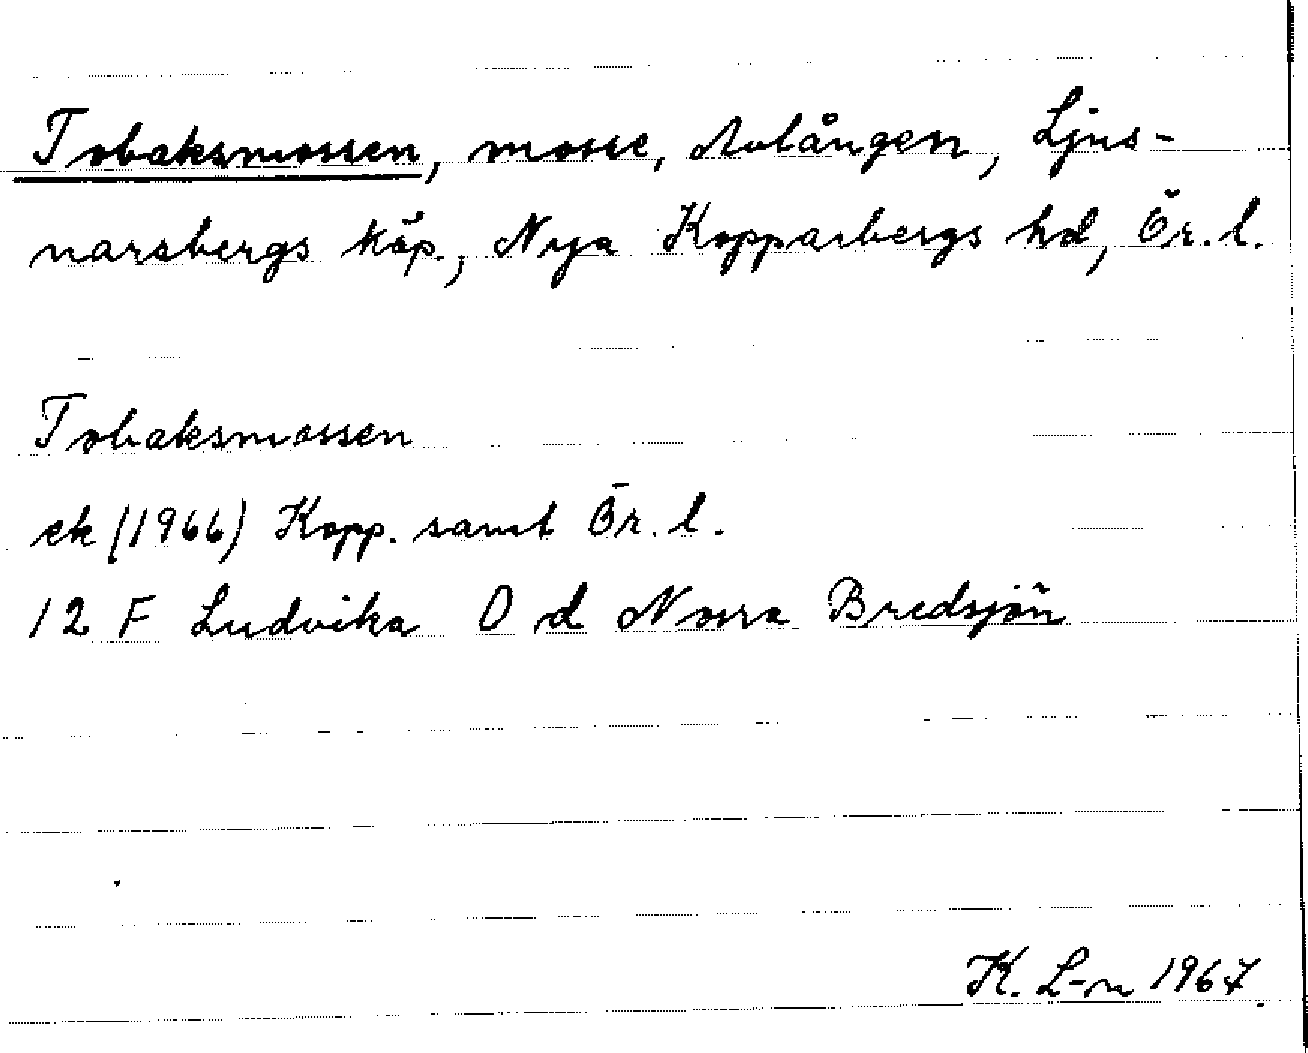 Tobaksmossen, mosse, Avlången, Ljus-
narsbergs köp., Nya Kopparbergs hd, Ör. l.
Tobaksmossen
ek (1966) Kopp. samt Ör. l.
12 F Ludvika 0 d Norra Bredsjön
K. L-n 1967.